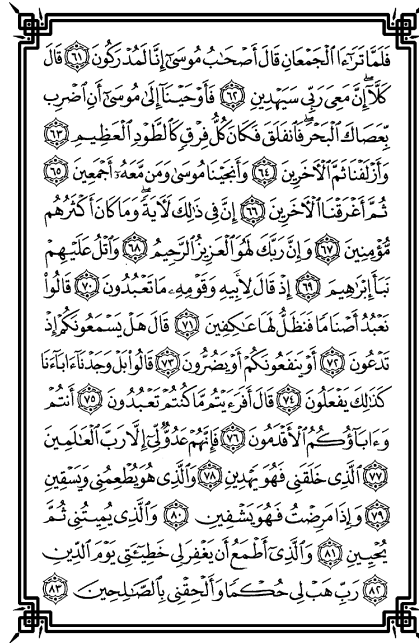 فَلَمَّا تَرَٰٓءَا ٱلْجَمْعَانِ قَالَ أَصْحَٰبُ مُوسَىٰٓ إِنَّا لَمُدْرَكُونَ ٦١ قَالَ
كَلَّآ ۖ إِنَّ مَعِىَ رَبِّى سَيَهْدِينِ ٦٢ فَأَوْحَيْنَآ إِلَىٰ مُوسَىٰٓ أَنِ ٱضْرِب
بِّعَصَاكَ ٱلْبَحْرَ ۖ فَٱنفَلَقَ فَكَانَ كُلُّ فِرْقٍ كَٱلطَّوْدِ ٱلْعَظِيمِ ٦٣
وَأَزْلَفْنَا ثَمَّ ٱلْءَاخَرِينَ ٦٤ وَأَنجَيْنَا مُوسَىٰ وَمَن مَّعَهُۥٓ أَجْمَعِينَ ٦٥
ثُمَّ أَغْرَقْنَا ٱلْءَاخَرِينَ ٦٦ إِنَّ فِى ذَٰلِكَ لَءَايَةً ۖ وَمَا كَانَ أَكْثَرُهُم
مُّؤْمِنِينَ ٦٧ وَإِنَّ رَبَّكَ لَهُوَ ٱلْعَزِيزُ ٱلرَّحِيمُ ٦٨ وَٱتْلُ عَلَيْهِمْ
نَبَأَ إِبْرَٰهِيمَ ٦٩ إِذْ قَالَ لِأَبِيهِ وَقَوْمِهِۦ مَا تَعْبُدُونَ ٧٠ قَالُوا۟
نَعْبُدُ أَصْنَامًا فَنَظَلُّ لَهَا عَٰكِفِينَ ٧١ قَالَ هَلْ يَسْمَعُونَكُمْ إِذْ
تَدْعُونَ ٧٢ أَوْ يَنفَعُونَكُمْ أَوْ يَضُرُّونَ ٧٣ قَالُوا۟ بَلْ وَجَدْنَآ ءَابَآءَنَا
كَذَٰلِكَ يَفْعَلُونَ ٧٤ قَالَ أَفَرَءَيْتُم مَّا كُنتُمْ تَعْبُدُونَ ٧٥ أَنتُمْ
وَءَابَآؤُكُمُ ٱلْأَقْدَمُونَ ٧٦ فَإِنَّهُمْ عَدُوٌّ لِّىٓ إِلَّا رَبَّ ٱلْعَٰلَمِينَ
٧٧ ٱلَّذِى خَلَقَنِى فَهُوَ يَهْدِينِ ٧٨ وَٱلَّذِى هُوَ يُطْعِمُنِى وَيَسْقِينِ
٧٩ وَإِذَا مَرِضْتُ فَهُوَ يَشْفِينِ ٨٠ وَٱلَّذِى يُمِيتُنِى ثُمَّ
يُحْيِينِ ٨١ وَٱلَّذِىٓ أَطْمَعُ أَن يَغْفِرَ لِى خَطِيٓـَٔتِى يَوْمَ ٱلدِّينِ
٨٢ رَبِّ هَبْ لِى حُكْمًا وَأَلْحِقْنِى بِٱلصَّٰلِحِينَ ٨٣